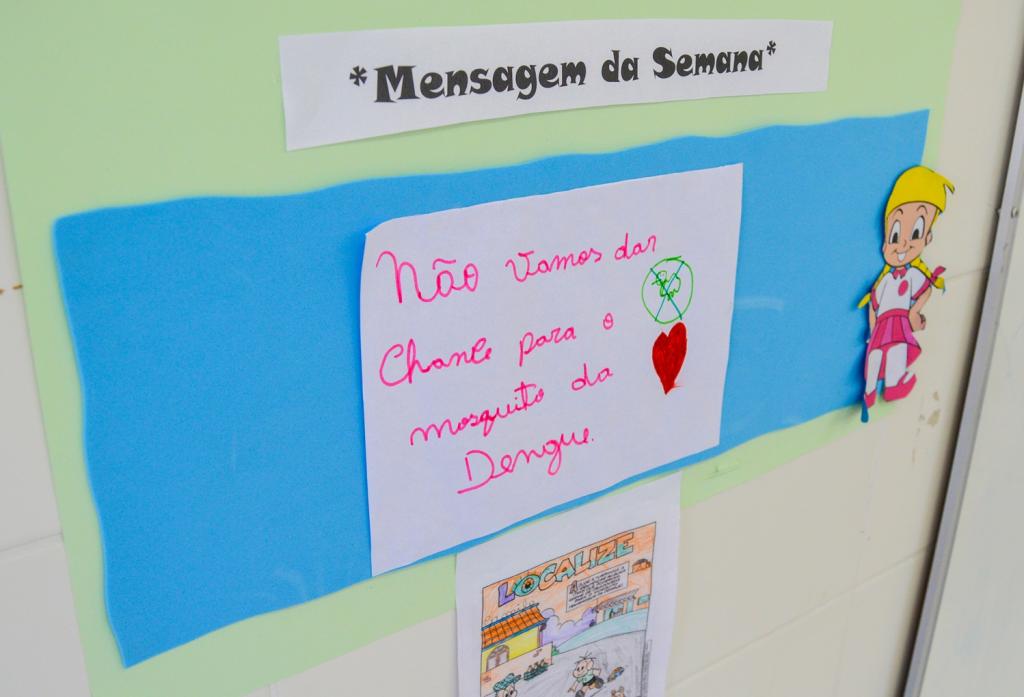 *Mensagem da Semana*
Não vamos dar
Chance para o
mosquito da
Dengue.
LOCALIZE